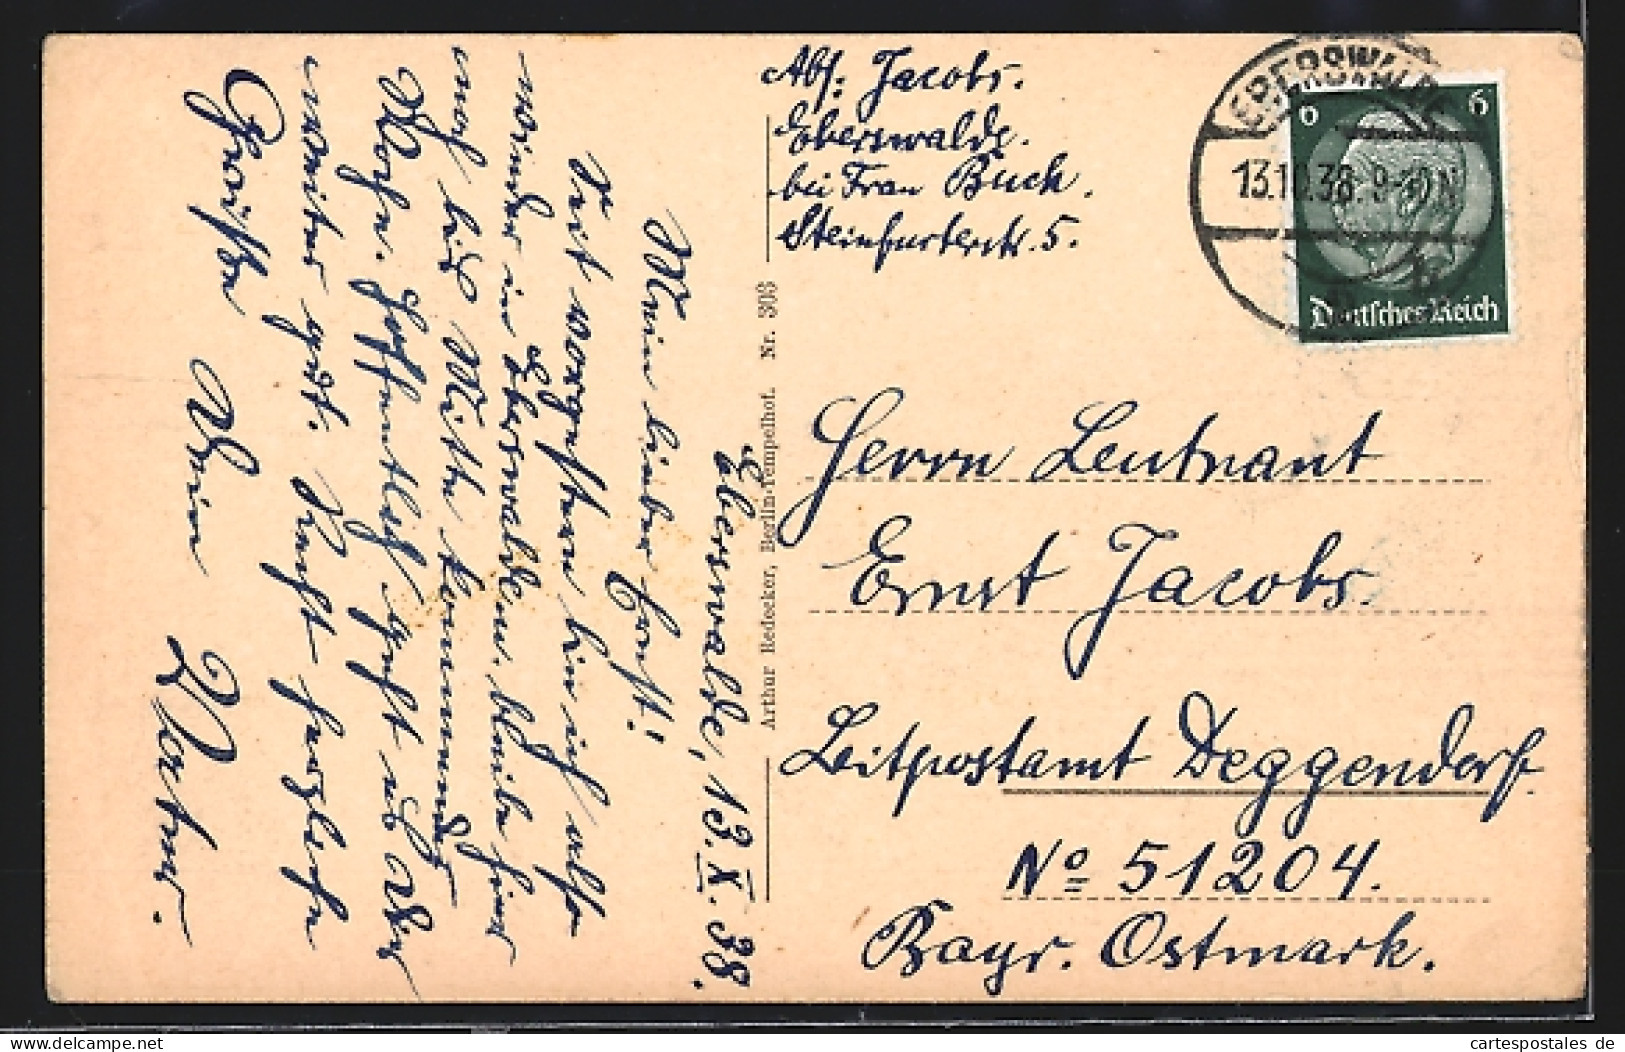 Abs: Jacobs.
Eberswalde.
bei Frau Buch.
Steinfurterstr. 5.
EBERSWALDE
13.10.38. 9-10N
6 6
Deutsches Reich
Herrn Leutnant
Ernst Jacobs.
Leitpostamt Deggendorf.
No 51204.
Bayr. Ostmark.
Arthur Redecker, Berlin-Tempelhof. Nr. 303
Eberswalde, 13.X.38.
Mein lieber Ernst!
Seit vorgestern bin ich also
wieder in Eberswalde u. bleibe hier
noch bis Mitte kommender
Woche. Hoffentlich geht es Dir
weiter gut. Recht herzliche
Grüße Dein
Vater.
cartespostales de